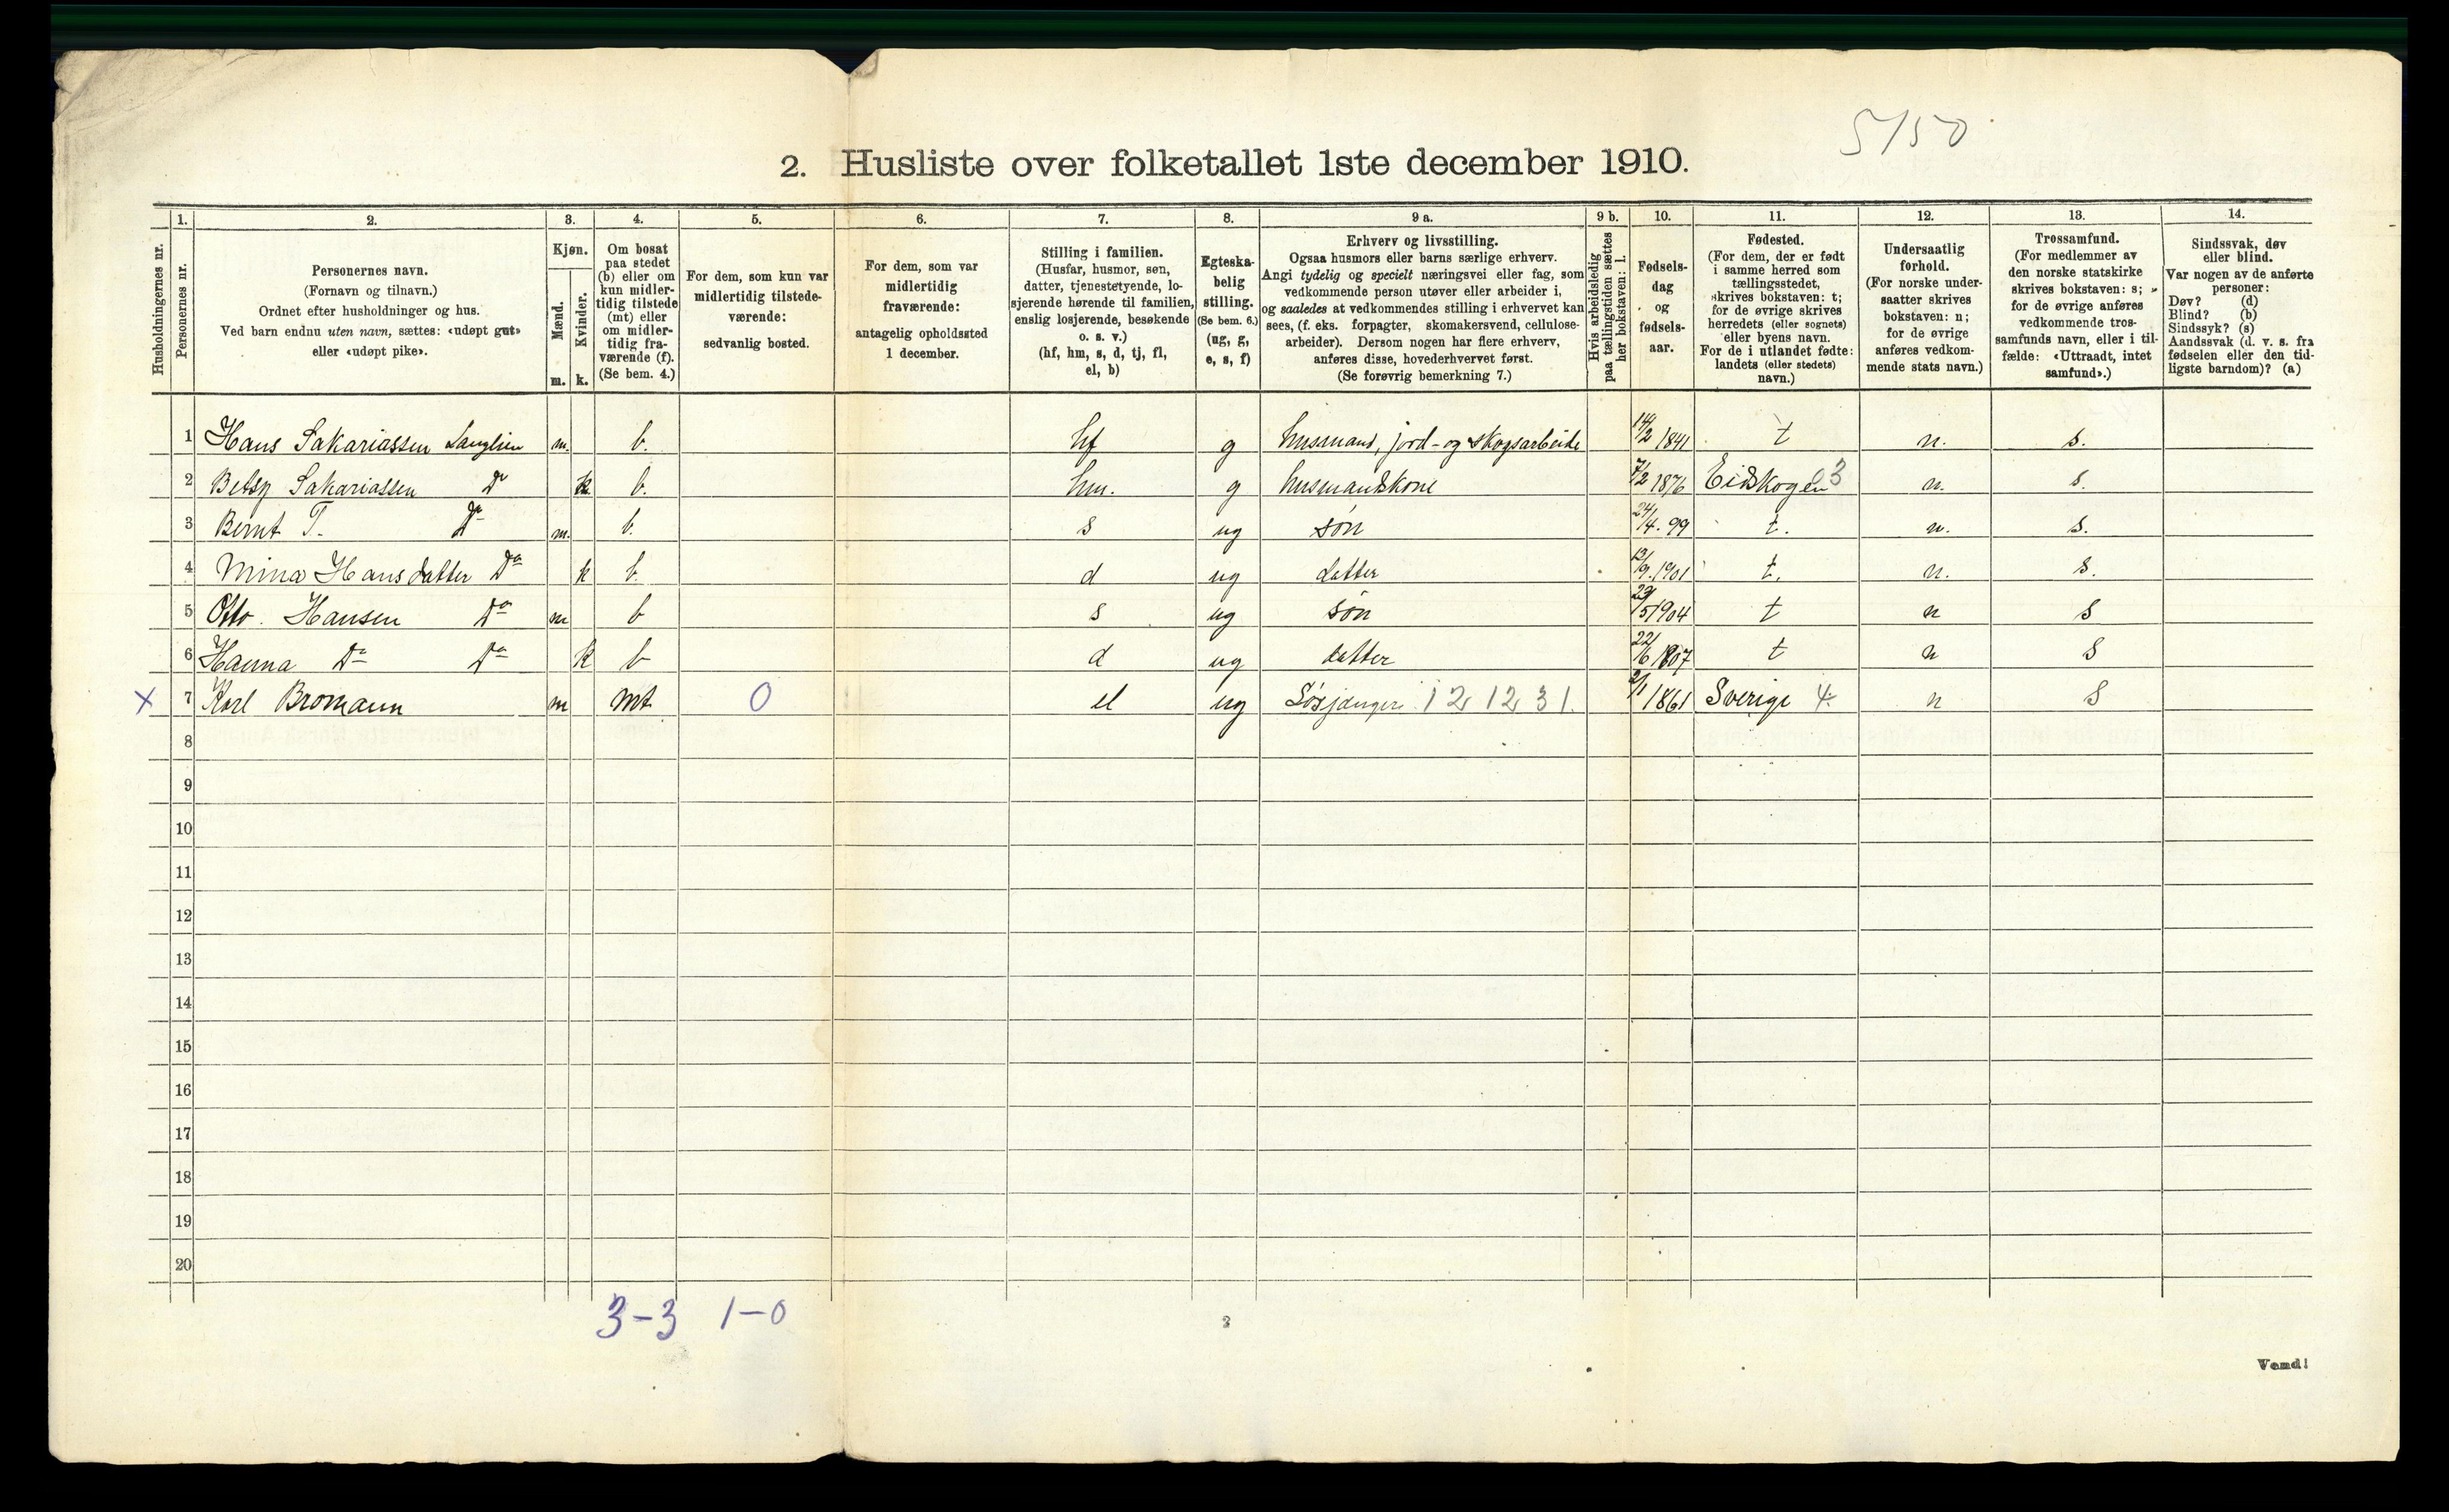 5/50
2. Husliste over folketallet 1ste december 1910.
1. 2. 3. 4. 5. 6. 7. 8. 9 a. 9 b. 10. 11. 12. 13. 14.
Husholdningernes nr.
Personernes nr.
Personernes navn.
(Fornavn og tilnavn.)
Ordnet efter husholdninger og hus.
Ved barn endnu uten navn, sættes: «udøpt gut»
eller «udøpt pike».
Kjøn.
Mænd.
Kvinder.
m. k.
Om bosat
paa stedet
(b) eller om
kun midler-
tidig tilstede
(mt) eller
om midler-
tidig fra-
værende (f).
(Se bem. 4.)
For dem, som kun var
midlertidig tilstede-
værende:
sedvanlig bosted.
For dem, som var
midlertidig
fraværende:
antagelig opholdssted
1 december.
Stilling i familien.
(Husfar, husmor, søn,
datter, tjenestetyende, lo-
sjerende hørende til familien,
enslig losjerende, besøkende
o. s. v.)
(hf, hm, s, d, tj, fl,
el, b)
Egteska-
belig
stilling.
(Se bem. 6.)
(ug, g,
e, s, f)
Erhverv og livsstilling.
Ogsaa husmors eller barns særlige erhverv.
Angi tydelig og specielt næringsvei eller fag, som
vedkommende person utøver eller arbeider i,
og saaledes at vedkommendes stilling i erhvervet kan
sees, (f. eks. forpagter, skomakersvend, cellulose-
arbeider). Dersom nogen har flere erhverv,
anføres disse, hovederhvervet først.
(Se forøvrig bemerkning 7.)
Hvis arbeidsledig
paa tællingstiden sættes
her bokstaven: l.
Fødsels-
dag
og
fødsels-
aar.
Fødested.
(For dem, der er født
i samme herred som
tællingsstedet,
skrives bokstaven: t;
for de øvrige skrives
herredets (eller sognets)
eller byens navn.
For de i utlandet fødte:
landets (eller stedets)
navn.)
Undersaatlig
forhold.
(For norske under-
saatter skrives
bokstaven: n;
for de øvrige
anføres vedkom-
mende stats navn.)
Trossamfund.
(For medlemmer av
den norske statskirke
skrives bokstaven: s;
for de øvrige anføres
vedkommende tros-
samfunds navn, eller i til-
fælde: «Uttraadt, intet
samfund».)
Sindssvak, døv
eller blind.
Var nogen av de anførte
personer:
Døv? (d)
Blind? (b)
Sindssyk? (s)
Aandssvak (d. v. s. fra
fødselen eller den tid-
ligste barndom)? (a)
1 Hans Sakariassen Langlien m. b. hf g husmand, jord- og skogsarbeide 14/2 1841 t n. s.
2 Betsy Sakariassen Do k b. hm. g husmandskone 7/2 1876 Eidskogen 3 n. s.
3 Bernt T. Do m. b. s ug søn 24/4. 99 t. n. s.
4 Mina Hansdatter Do k b. d ug datter 13/9. 1901 t. n. s.
5 Otto. Hansen Do m b s ug søn 29/5 1904 t n s
6 Hanna Do Do k b d ug datter 22/6 1807 t n s
x 7 Karl Bromann m mt 0 el ug Løsjænger 12 12 31. 2/1 1861 Sverige 4 n s
8
9
10
11
12
13
14
15
16
17
18
19
20
3-3 1-0
2
Vend!